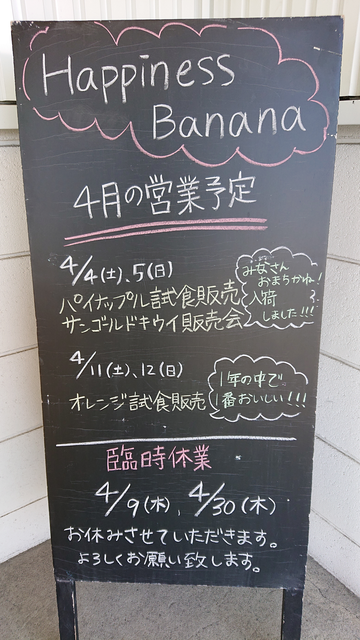 Happiness
Banana
4月の営業予定
4/4(土)、5(日)
パイナップル試食販売
サンゴールドキウイ販売会
みなさん
おまちかね!
入荷
しました!!!
4/11(土)、12(日)
オレンジ試食販売
1年の中で
1番おいしい!!!
臨時休業
4/9(木)、4/30(木)
お休みさせていただきます。
よろしくお願い致します。